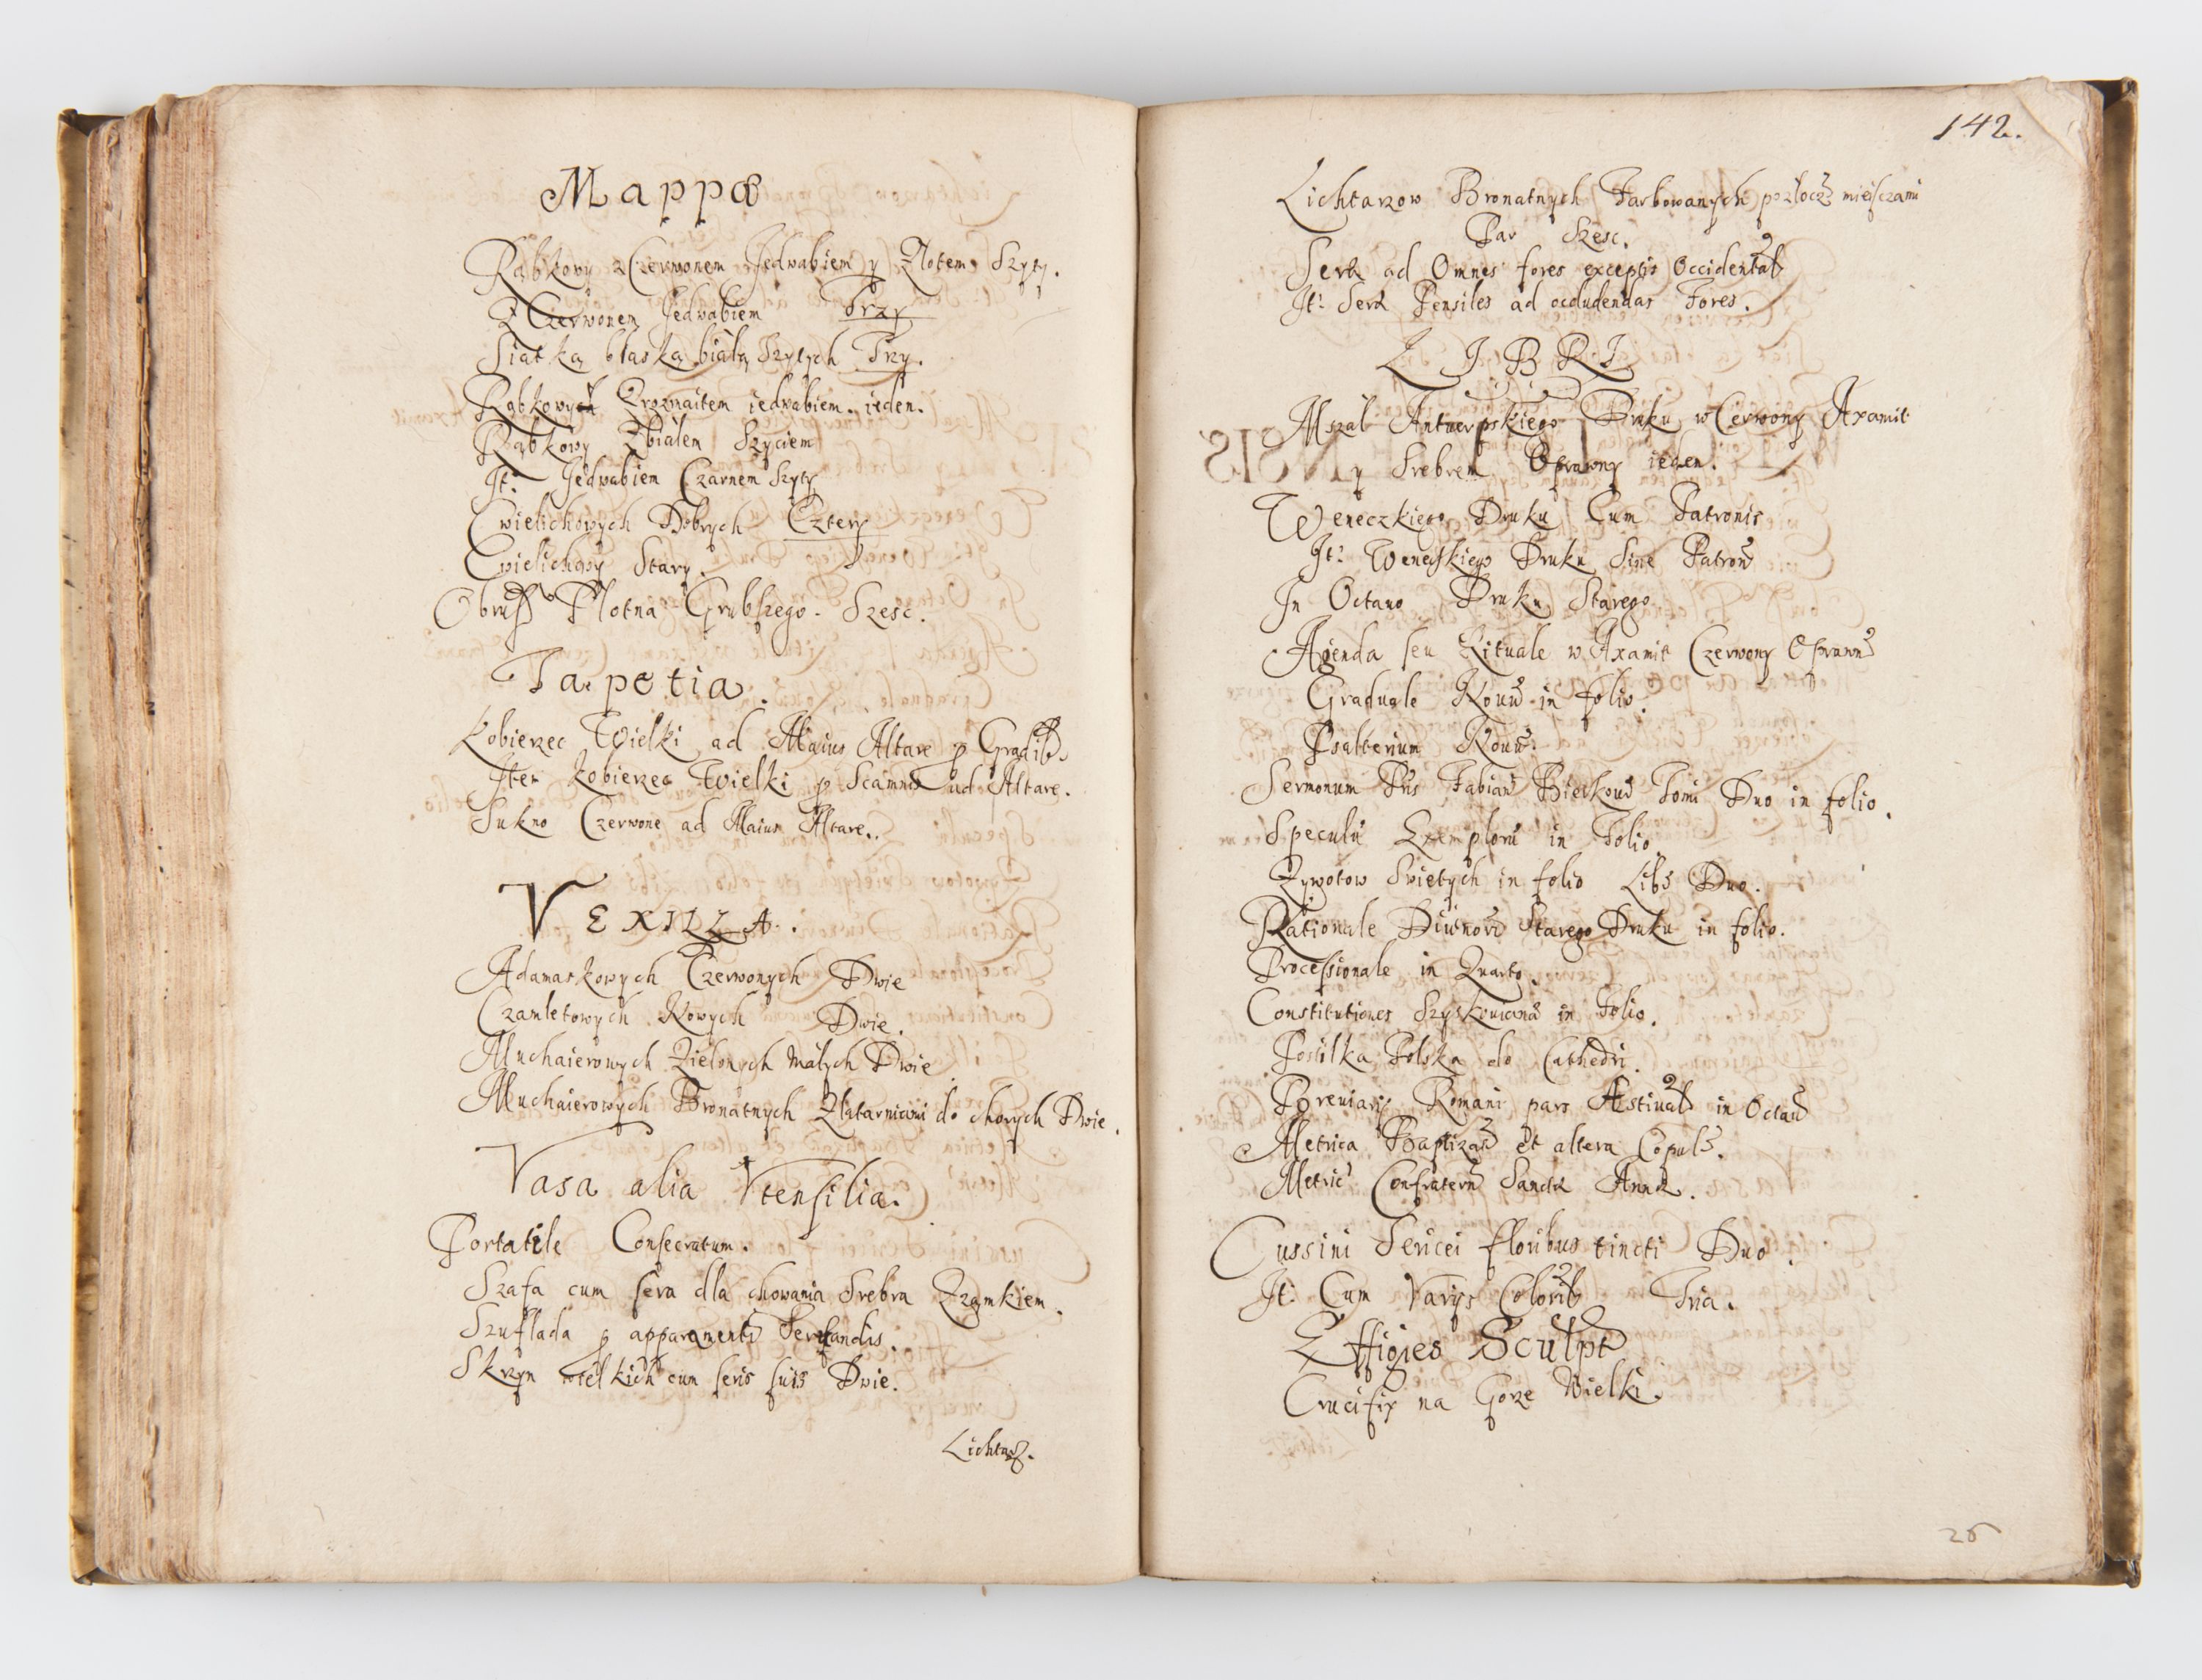 Mappæ
Rąbkowy z Czerwonem Jedwabiem y Złotem Szyty.
Z Czerwonem Jedwabiem Trzy
Siatką błaską białą Szytych Trzy.
Rąbkowych Zroznaitem iedwabiem. ieden.
Rąbkowy Zbiałem Szyciem
It: Jedwabiem Czarnem Szyty
Cwielichowych Dobrych Cztery
Cwielichowy Stary.
Obrusß Płotna Grubszego. Szesc.
Tapetia.
Kobierzec Wielki ad Maius Altare p Gradib9
Item Kobierzec Wielki p Scamno ad Altare.
Sukno Czerwone ad Maius Altare.
VEXILLA.
Adamaskowych Czerwonych Dwie
Czamletowych Nowych Dwie.
Muchaierowych Zielonych małych Dwie
Muchaierowych Bronatnych Zlatarniami do chorych Dwie.
Vasa alia Vtensilia.
Portatile Consecratum.
Szafa cum sera dla chowania Srebra Zzamkiem.
Szuflada p apparamentis Servandis.
Skrzyn wielkich cum seris suis Dwie.
Lichtarz.
142.
Lichtarzow Bronatnych Farbowanych pozłocż mieisczami
Par Szesc.
Seræ ad Omnes fores exceptis Occidental
It: Seræ Pensiles ad occludendas Fores.
LIBRI
Mszał Antuerpskiego Druku w Cerwony Axamit
y Srebrem Oprawny ieden.
Weneczkiego Druku Cum Patronis
It: Weneckiego Druku Sine Patron
In Octauo Druku Starego
Agenda seu Rituale w Axamit Czerwony Oprawn
Graduale Nouũ in folio.
Psalterium Nouũ.
Sermonum Pris Fabiani Bierkouɉ Tomi Duo in folio.
Speculũ Exemplorũ in Folio.
Zywotow Swiętych in folio Lib Duo.
Rationale Diuinorũ Starego Druku in folio.
Processionale in Quarto.
Constitutiones Szyszkouianæ in Folio.
Postilka Polska do Cathedri.
Breuiarij Romani pars Æstiual in Octau
Metrica Baptizat et altera Copul.
Metric Confratern Sanctæ Annæ.
Cussini Sericei floribus tincti Duo.
It: Cum Varijs Colorib Tria.
Effigies Sculpt
Crucifix na Gorze Wielki.
26